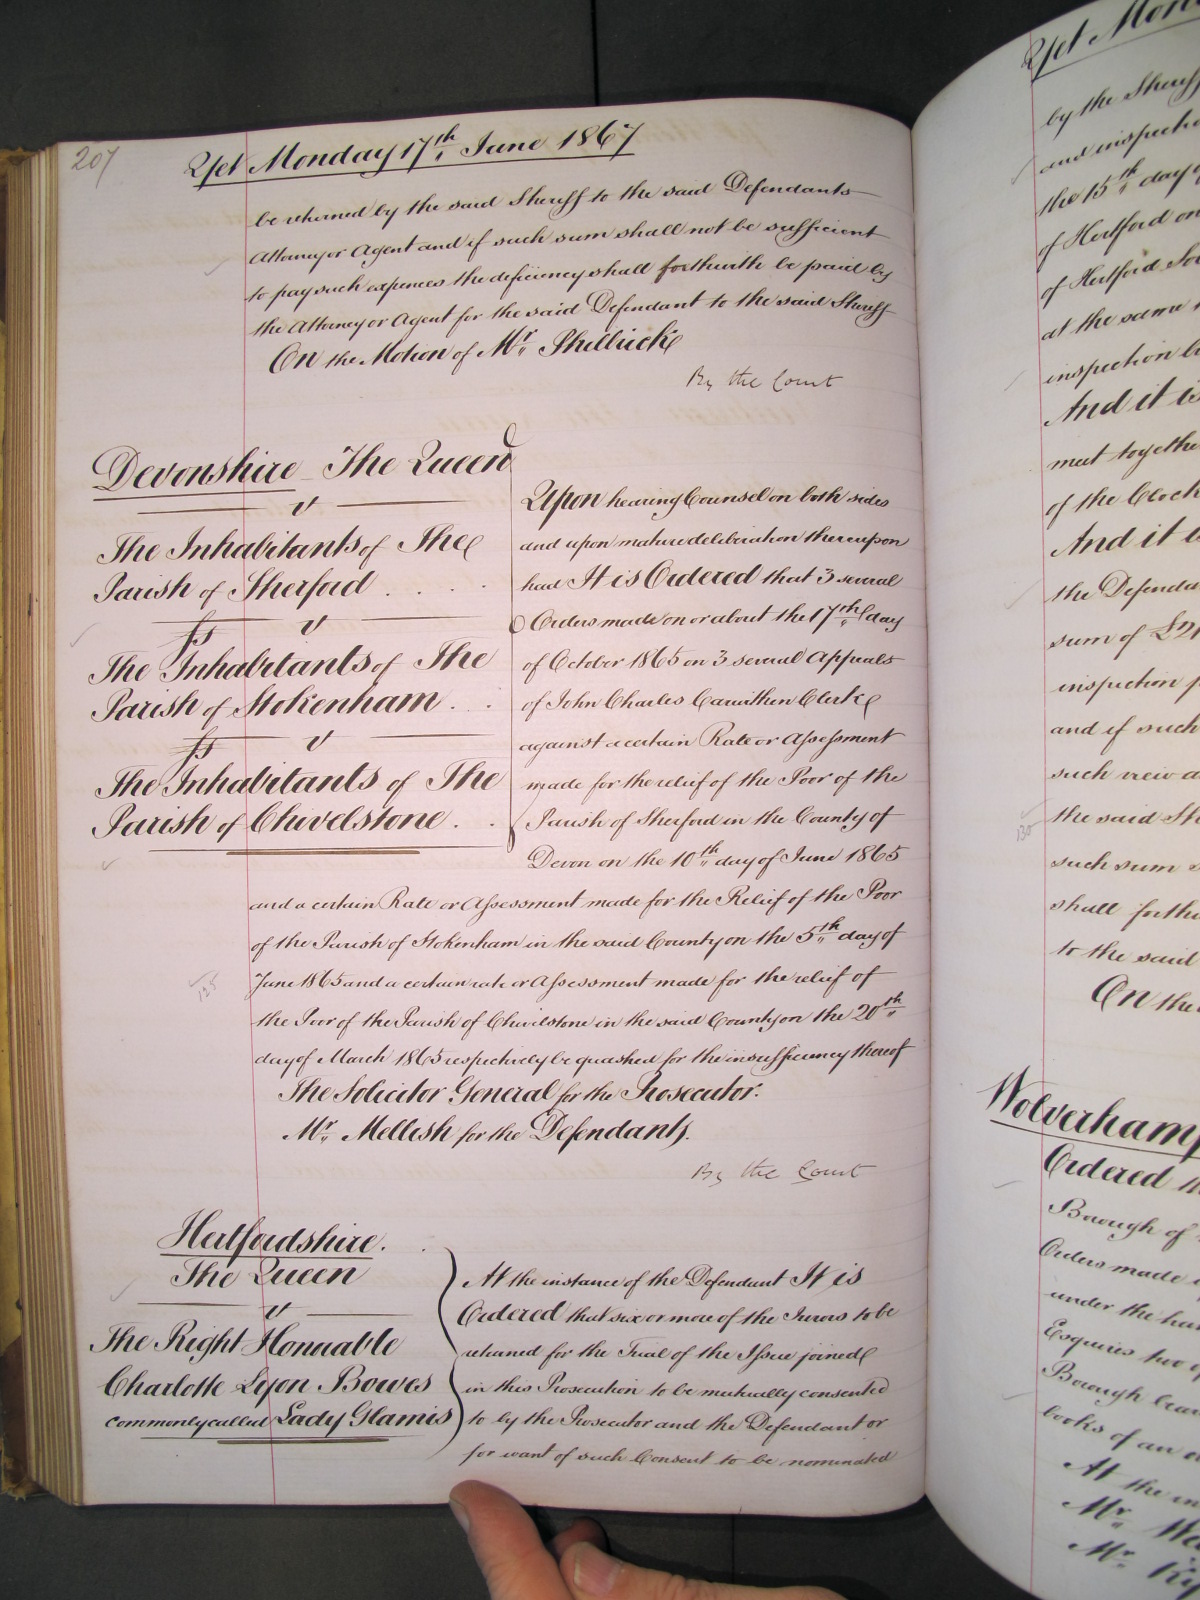 207
Yet Monday 17th June 1867
be returned by the said Sheriff to the said Defendants
Attorney or Agent and if such sum shall not be sufficient
to pay such expences the deficiency shall forthwith be paid by
the Attorney or Agent for the said Defendant to the said Sheriff
On the Motion of Mr. Philbrick
By the Court
Devonshire The Queen
v
The Inhabitants of The
Parish of Sherford
Js v
The Inhabitants of The
Parish of Stokenham
Js v
The Inhabitants of The
Parish of Chivelstone
Upon hearing Counsel on both sides
and upon mature deliberation thereupon
had It is Ordered that 3 several
Orders made on or about the 17th day
of October 1865 on 3 several Appeals
of John Charles Carwithen Clerk
against a certain Rate or Assessment
made for the relief of the Poor of the
Parish of Sherford in the County of
Devon on the 10th day of June 1865
and a certain Rate or Assessment made for the Relief of the Poor
of the Parish of Stokenham in the said County on the 5th day of
June 1865 and a certain rate or Assessment made for the relief of
the Poor of the Parish of Chivelstone in the said County on the 20th
day of March 1865 respectively be quashed for the insufficiency thereof
The Solicitor General for the Prosecutor.
Mr. Mellish for the Defendants.
By the Court
125
Hertfordshire.
The Queen
v
The Right Honorable
Charlotte Lyon Bowes
commonly called Lady Glamis
At the instance of the Defendant It is
Ordered that six or more of the Jurors to be
returned for the Trial of the Issue joined
in this Prosecution to be mutually consented
to by the Prosecutor and the Defendant or
for want of such Consent to be nominated
Yet Mon
by the Sheriff
and inspection
the 15th day of
of Hertford on
of Hertford
at the same
inspection
And it is
meet together
of the Clock
And it is
the Defenda
sum of £21
inspection
and if such
such view
the said Sh
130
such sum
shall forth
to the said
On the
Wolverhamp
Ordered
Borough of
Orders made
under the han
Esquires two of
Borough
books of an
At the in
Mr.
Mr.